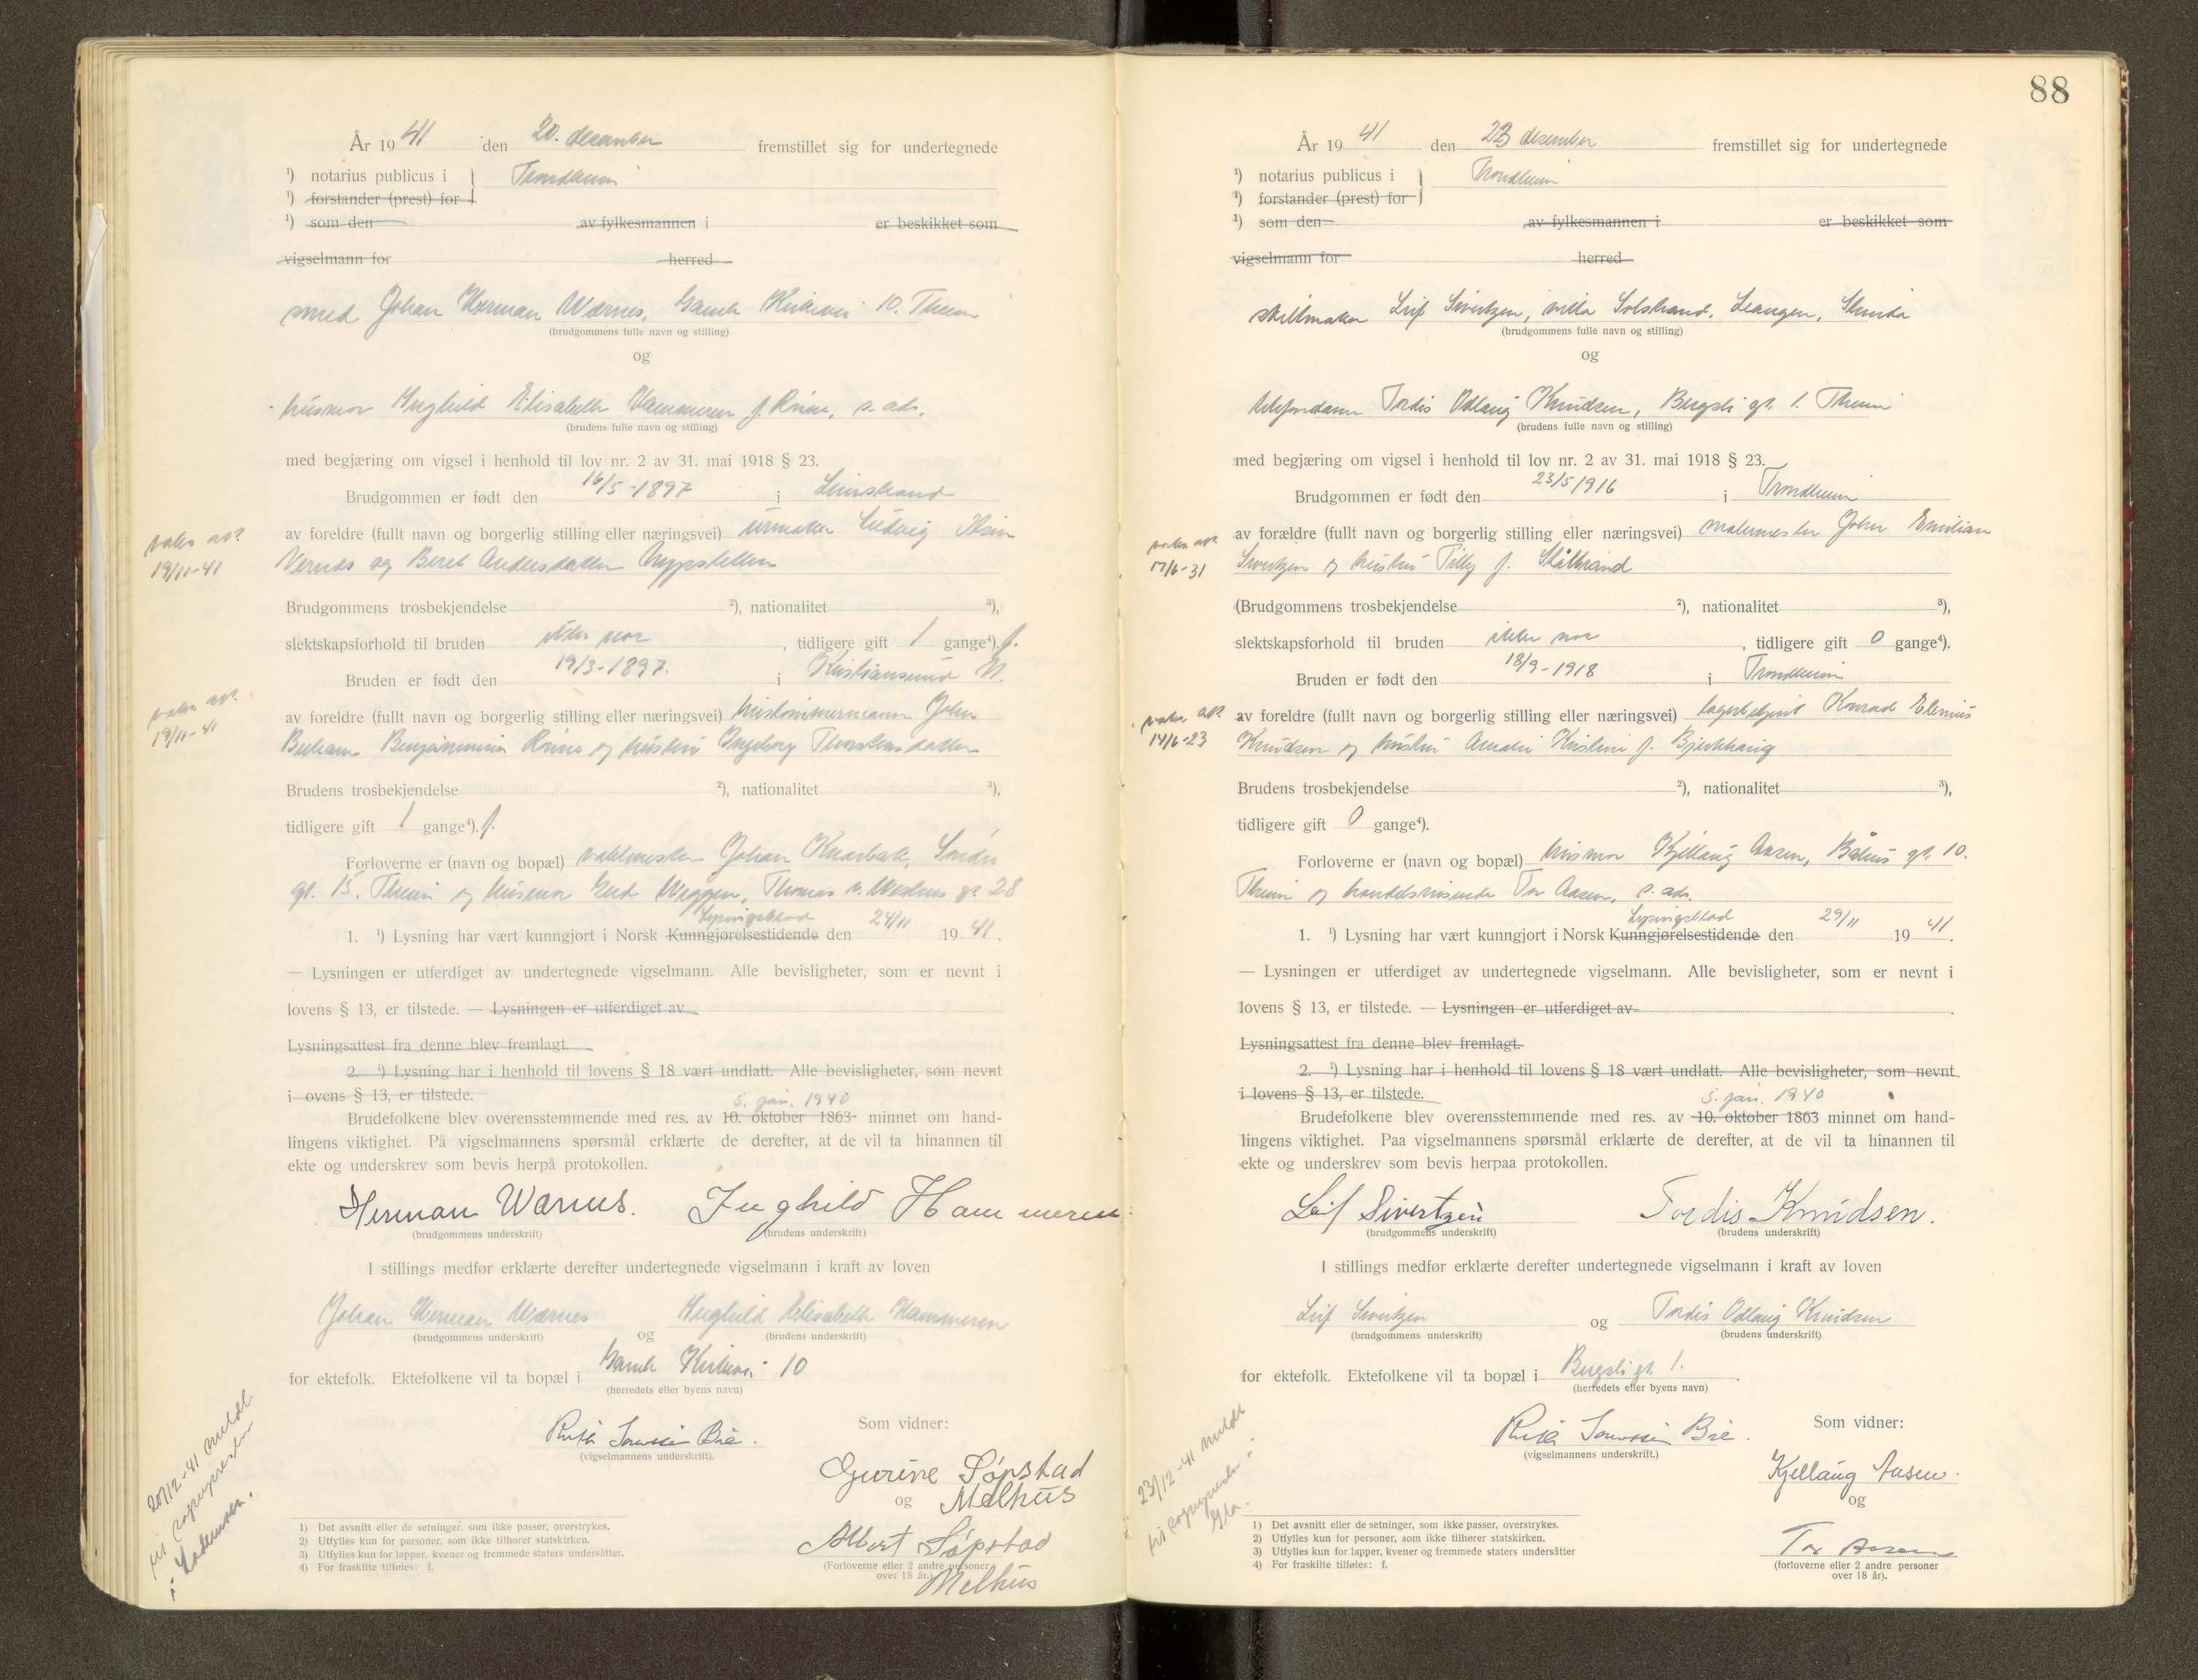 År 19 41 den 20. desember fremstillet sig for undertegnede
¹) notarius publicus i } Trondheim
¹) forstander (prest) for
¹) som den av fylkesmannen i er beskikket som
vigselmann for herred
smed Johan Herman Wærnes, Gamle Kirkevei 10. Them
(brudgommens fulle navn og stilling)
og
husmor Inghild Elisabeth Hammeren f. Rime, s. adr.
(brudens fulle navn og stilling)
med begjæring om vigsel i henhold til lov nr. 2 av 31. mai 1918 § 23.
Brudgommen er født den 16/5-1897 i Leinstrand
av foreldre (fullt navn og borgerlig stilling eller næringsvei) urmaker Ludvig
19/11-41
Vernes og Beret Andersdatter
Brudgommens trosbekjendelse ²), nationalitet ³),
slektskapsforhold til bruden ikke nær, tidligere gift 1 gange⁴). f.
Bruden er født den 19/3-1897. i Kristiansund N.
av foreldre (fullt navn og borgerlig stilling eller næringsvei) hustømmermann John
19/11-41
Rime og hustru Ingeborg
Brudens trosbekjendelse ²), nationalitet ³),
tidligere gift 1 gange⁴). f.
Forloverne er (navn og bopæl) vaktmester Johan
gt. 15. Theim og husmor Weggen, Thomas v. Westens gt 28
Lysingsblad 24/11
1. ¹) Lysning har vært kunngjort i Norsk Kunngjørelsestidende den 19 41.
— Lysningen er utferdiget av undertegnede vigselmann. Alle bevisligheter, som er nevnt i
lovens § 13, er tilstede. — Lysningen er utferdiget av
Lysningsattest fra denne blev fremlagt.
2. ¹) Lysning har i henhold til lovens § 18 vært undlatt. Alle bevisligheter, som nevnt
i ovens § 13, er tilstede.
5. jan. 1940
Brudefolkene blev overensstemmende med res. av 10. oktober 1863 minnet om hand-
lingens viktighet. På vigselmannens spørsmål erklærte de derefter, at de vil ta hinannen til
ekte og underskrev som bevis herpå protokollen.
Herman Wærnes. Inghild Hammeren.
(brudgommens underskrift) (brudens underskrift)
I stillings medfør erklærte derefter undertegnede vigselmann i kraft av loven
Johan Herman Wærnes og Inghild Elisabeth Hammeren
(brudgommens underskrift) (brudens underskrift)
for ektefolk. Ektefolkene vil ta bopæl i Gamle Kirkevei 10
(herredets eller byens navn)
Som vidner:
Ruth Bie.
(vigselmannens underskrift).
Gurine Løpstad
og Melhus
Albert Løpstad
(Forloverne eller 2 andre personer
over 18 år.) Melhus
20/12-41 meldt
til sognepresten
i Lademoen.
1) Det avsnitt eller de setninger, som ikke passer, overstrykes.
2) Utfylles kun for personer, som ikke tilhører statskirken.
3) Utfylles kun for lapper, kvener og fremmede staters undersåtter.
4) For fraskilte tilføies: f.
88
År 19 41 den 23 desember fremstillet sig for undertegnede
¹) notarius publicus i } Trondheim
¹) forstander (prest) for
¹) som den av fylkesmannen i er beskikket som
vigselmann for herred
skiltmaker Leif Sivertzen, villa Solstrand, Leangen, Strinda
(brudgommens fulle navn og stilling)
og
telefondame Tordis Odlaug Knudsen, Bergsli gt. 1. Theim
(brudens fulle navn og stilling)
med begjæring om vigsel i henhold til lov nr. 2 av 31. mai 1918 § 23.
Brudgommen er født den 23/5 1916 i Trondheim
av forældre (fullt navn og borgerlig stilling eller næringsvei) malermester John Emilian
17/6-31
Sivertzen og hustru Tilly f. Skålbrand
(Brudgommens trosbekjendelse ²), nationalitet ³),
slektskapsforhold til bruden ikke nær, tidligere gift 0 gange⁴).
Bruden er født den 18/9-1918 i Trondheim
av foreldre (fullt navn og borgerlig stilling eller næringsvei) lagerbetjent Konrad Elenius
14/6-23
Knudsen og hustru Amalie Kristine f. Bjerkhaug
Brudens trosbekjendelse ²), nationalitet ³),
tidligere gift 0 gange⁴).
Forloverne er (navn og bopæl) husmor Kjellaug Aasen, gt. 10.
Theim og handelsreisende Tor Aasen, s. adr.
Lysingsblad 29/11
1. ¹) Lysning har vært kunngjort i Norsk Kunngjørelsestidende den 19 41.
— Lysningen er utferdiget av undertegnede vigselmann. Alle bevisligheter, som er nevnt i
lovens § 13, er tilstede. — Lysningen er utferdiget av
Lysningsattest fra denne blev fremlagt.
2. ¹) Lysning har i henhold til lovens § 18 vært undlatt. Alle bevisligheter, som nevnt
i lovens § 13, er tilstede.
5. jan. 1940
Brudefolkene blev overensstemmende med res. av 10. oktober 1863 minnet om hand-
lingens viktighet. Paa vigselmannens spørsmål erklærte de derefter, at de vil ta hinannen til
ekte og underskrev som bevis herpaa protokollen.
Leif Sivertzen Tordis Knudsen.
(brudgommens underskrift) (brudens underskrift)
I stillings medfør erklærte derefter undertegnede vigselmann i kraft av loven
Leif Sivertzen og Tordis Odlaug Knudsen
(brudgommens underskrift) (brudens underskrift)
for ektefolk. Ektefolkene vil ta bopæl i Bergsli gt. 1.
(herredets eller byens navn)
Som vidner:
Ruth Bie.
(vigselmannens underskrift.)
Kjellaug Aasen.
og
Tor Aasen
(forloverne eller 2 andre personer
over 18 år).
23/12-41 meldt
til sognepresten i
Ila.
1) Det avsnitt eller de setninger, som ikke passer, overstrykes.
2) Utfylles kun for personer, som ikke tilhører statskirken.
3) Utfylles kun for lapper, kvener og fremmede staters undersåtter
4) For fraskilte tilføies: f.